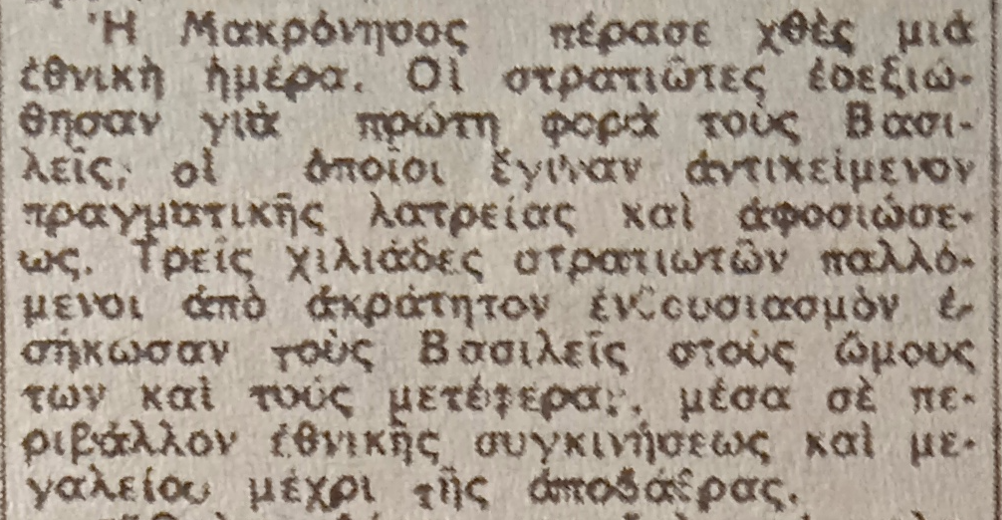 Ἡ Μακρόνησος πέρασε χθὲς μιὰ
ἐθνικὴ ἡμέρα. Οἱ στρατιῶτες ἐδεξιώ-
θησαν γιὰ πρώτη φορὰ τοὺς Βασι-
λεῖς, οἱ ὁποῖοι ἔγιναν ἀντικείμενον
πραγματικῆς λατρείας καὶ ἀφοσιώσε-
ως. Τρεῖς χιλιάδες στρατιωτῶν παλλό-
μενοι ἀπὸ ἀκράτητον ἐνθουσιασμὸν ἐ-
σήκωσαν τοὺς Βασιλεῖς στοὺς ὤμους
των καὶ τοὺς μετέφεραν, μέσα σὲ πε-
ριβάλλον ἐθνικῆς συγκινήσεως καὶ με-
γαλείου μέχρι τῆς ἀποβάθρας.